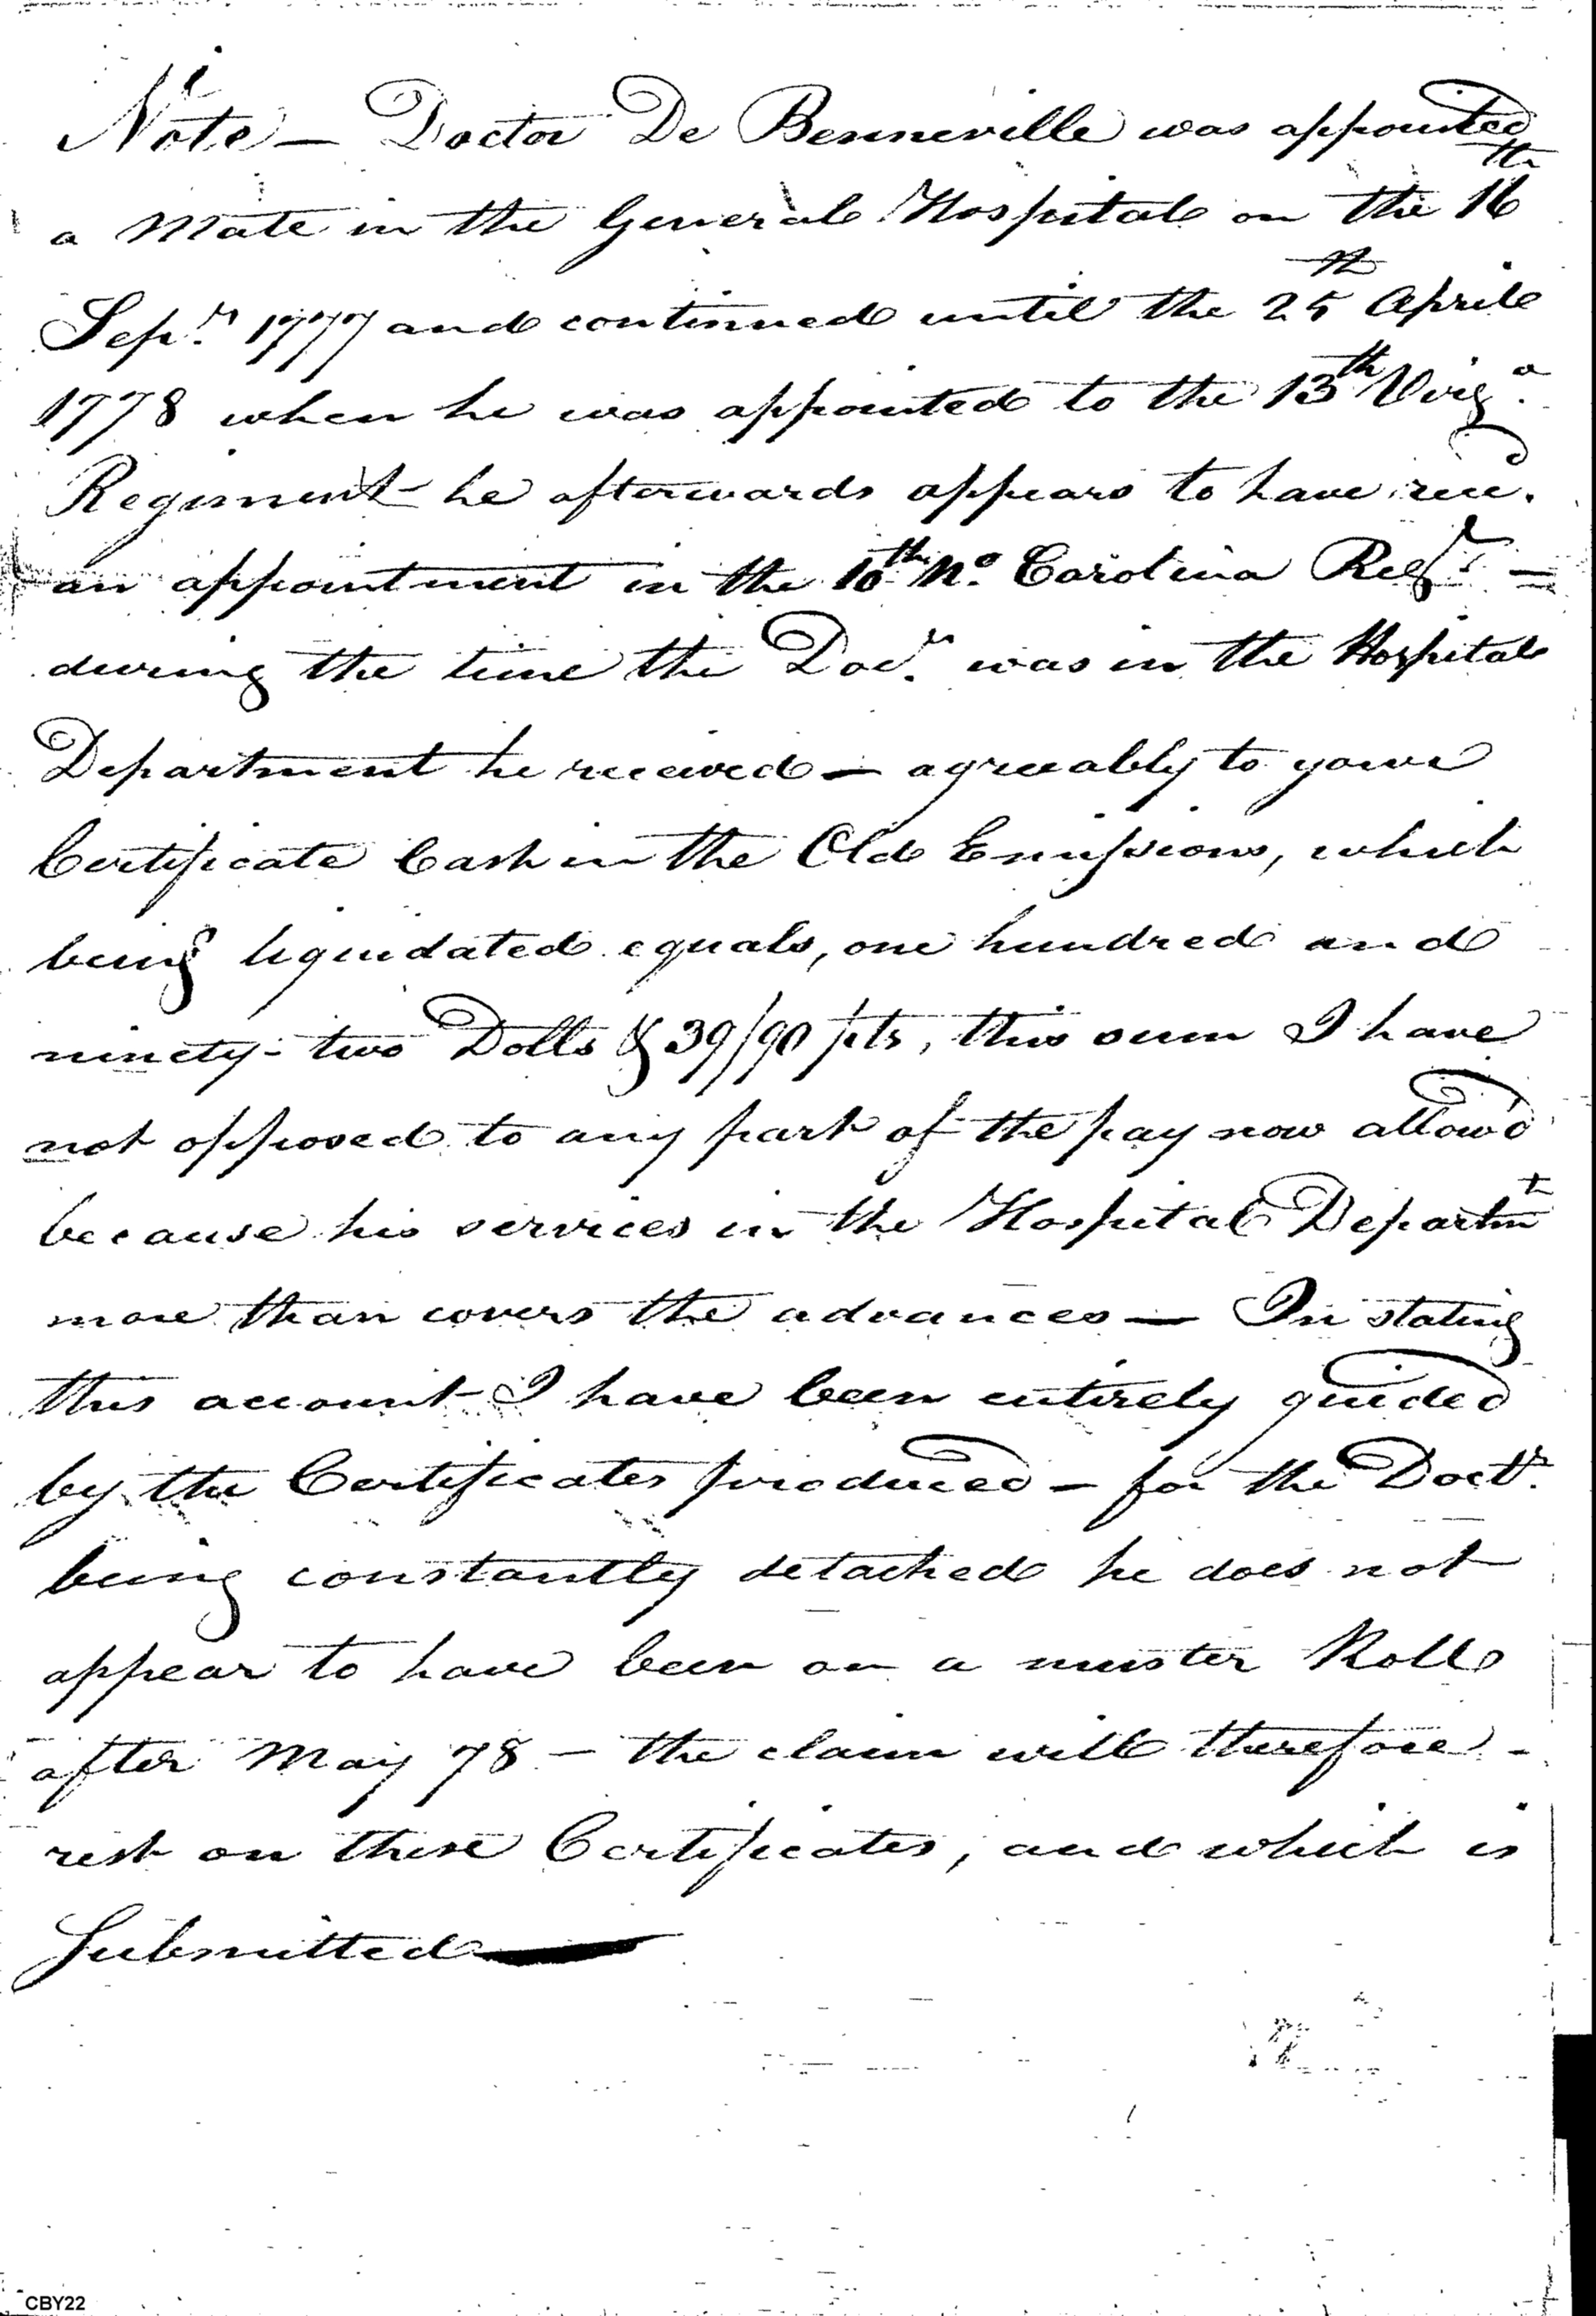 Note — Doctor De Benneville was appointed
a Mate in the General Hospital on the 16th
Sepr. 1777 and continued until the 25th April
1778 when he was appointed to the 13th Virga.
Regiment he afterwards appears to have recd.
an appointment in the 10th No. Carolina Regt. —
during the time the Docr. was in the Hospital
Department he received — agreeably to your
Certificate Cash in the Old Emissions, which
being liquidated equals, one hundred and
ninety-two Dolls & 39/90 pts, this sum I have
not opposed to any part of the pay now allow'd
because his services in the Hospital Departmt
more than covers the advances — In stating
this account I have been entirely guided
by the Certificates produced — for the Doctr.
being constantly detached he does not
appear to have been on a muster Roll
after May 78 — the claim will therefore -
rest on these Certificates, and which is
Submitted —
CBY22